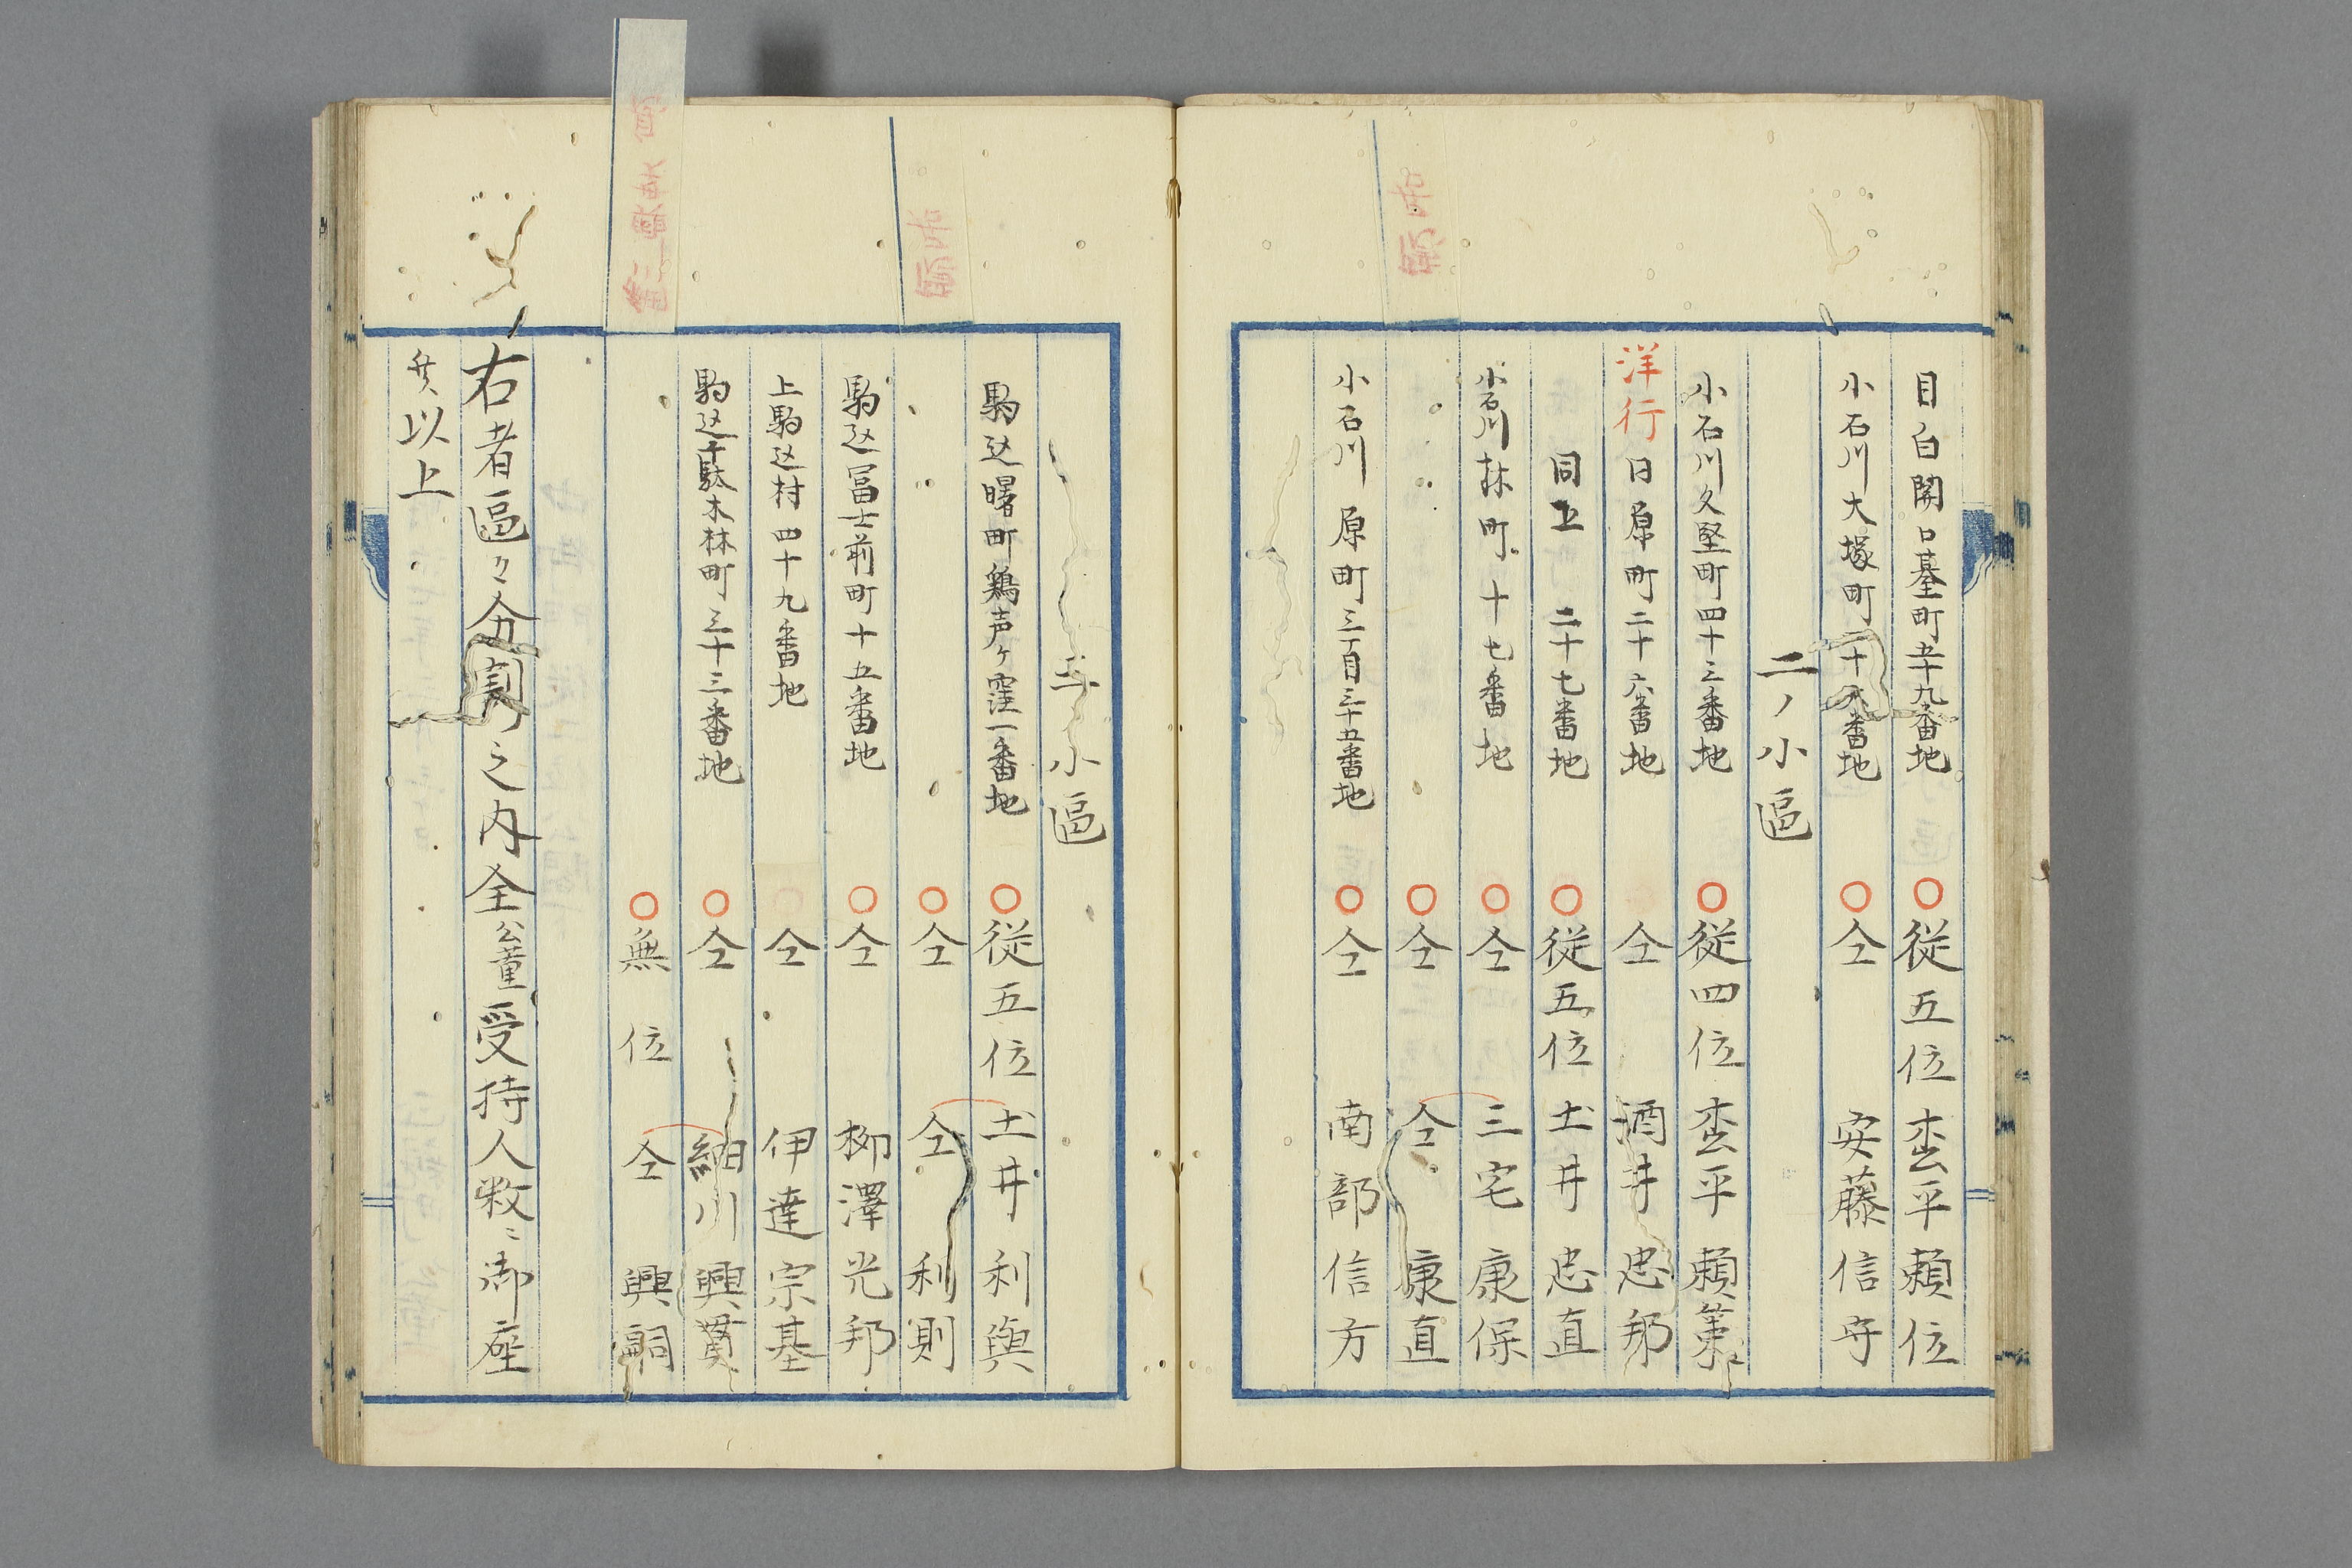 目白関口墓町五十九番地 ○従五位 枩平頼位
小石川大塚町二十八番地 ○仝 安藤信守
二ノ小區
小石川久堅町四十三番地 ○従四位 枩平頼策
洋行 日原町二十六番地 仝 酒井忠邦
同上 二十七番地 ○従五位 土井忠直
小石川林町十七番地 ○仝 三宅康保
○仝 仝 康直
小石川原町三丁目三十五番地 ○仝 南部信方
隠居
三ノ小區
駒込曙町鶏声ヶ窪一番地 ○従五位 土井利與
○仝 仝 利則
駒込冨士前町十五番地 ○仝 柳澤光邦
上駒込村四十九番地 仝 伊達宗基
駒込千駄木林町三十三番地 ○仝 細川興貫
○無位 仝 興嗣
隠居
右者區々分割之内全公董受持人数ニ御座
以上